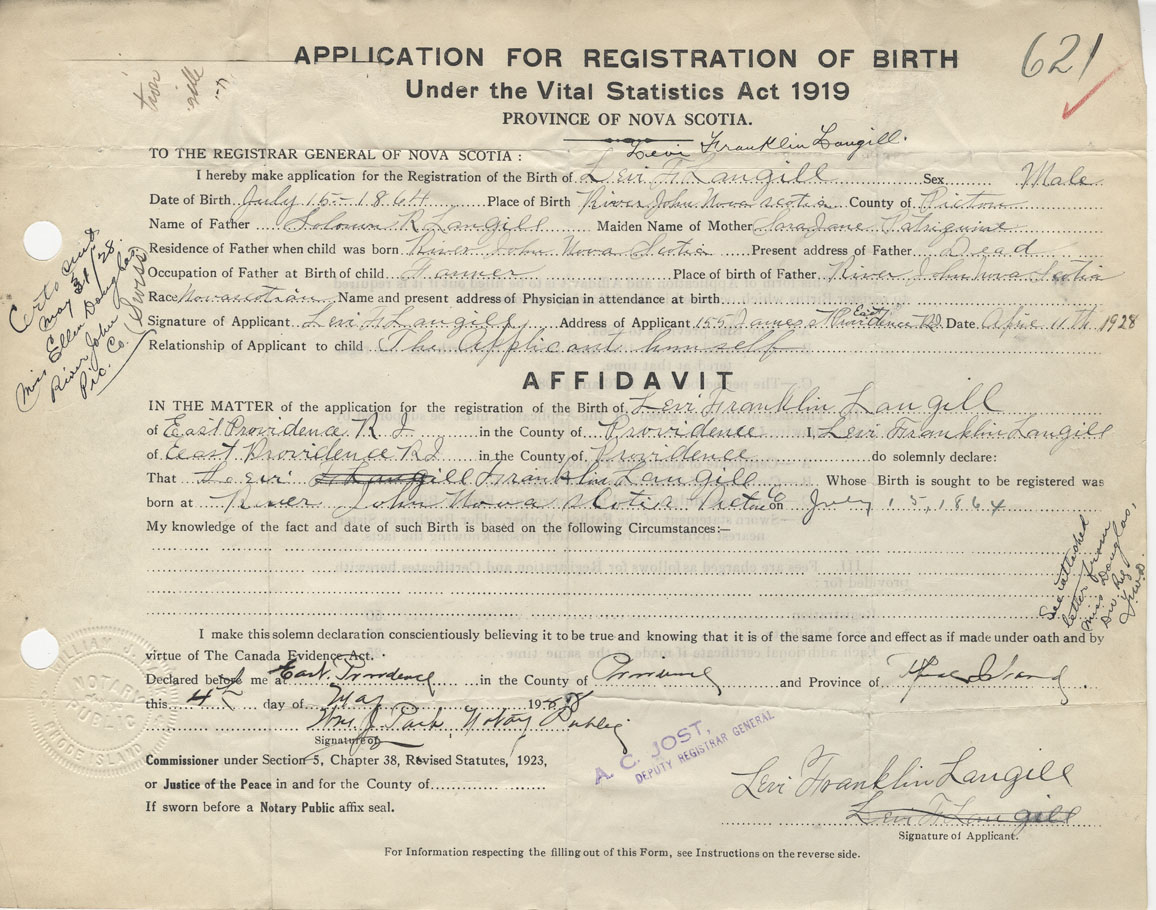 621
APPLICATION FOR REGISTRATION OF BIRTH
Under the Vital Statistics Act 1919
PROVINCE OF NOVA SCOTIA.
Levi Franklin Langill.
TO THE REGISTRAR GENERAL OF NOVA SCOTIA :
I hereby make application for the Registration of the Birth of Levi F Langill Sex Male
Date of Birth July 15-1864 Place of Birth River John Nova Scotia County of Pictou
Name of Father Solomn R Langill Maiden Name of Mother Sara Jane Patriquint
Residence of Father when child was born River John Nova Scotia Present address of Father Dead
Occupation of Father at Birth of child Farmer Place of birth of Father River John Nova Scotia
Race Novascotian Name and present address of Physician in attendance at birth
Signature of Applicant Levi F Langill Address of Applicant 155 James St East Providence R.I. Date April 11th 1928
Relationship of Applicant to child The Applicant himself
Certs sent
May 31/28
Miss Ellen Douglas
River John
Pic. Co.
(Swiss)
AFFIDAVIT
IN THE MATTER of the application for the registration of the Birth of Levi Franklin Langill
of East Providence R I in the County of Providence I, Levi Franklin Langill
of East Providence R I in the County of Providence do solemnly declare:
That Levi F Langill Franklin Langill Whose Birth is sought to be registered was
born at River John Nova Scotia Pictou Co on July 15, 1864
My knowledge of the fact and date of such Birth is based on the following Circumstances:—
See attached
letter from
Miss Douglas,
Div Reg
I make this solemn declaration conscientiously believing it to be true and knowing that it is of the same force and effect as if made under oath and by
virtue of The Canada Evidence Act.
Declared before me at East Providence in the County of Providence and Province of Rhode Island.
this 4th day of May 1928
Wm. J. Park, Notary Public
Signature of
Commissioner under Section 5, Chapter 38, Revised Statutes, 1923,
or Justice of the Peace in and for the County of
If sworn before a Notary Public affix seal.
NOTARY
PUBLIC
A. C. JOST,
DEPUTY REGISTRAR GENERAL
Levi Franklin Langill
Levi F Langill
Signature of Applicant.
For Information respecting the filling out of this Form, see Instructions on the reverse side.